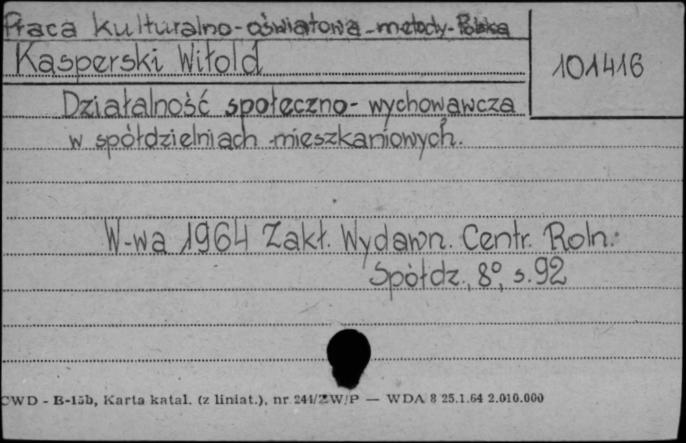 Praca kulturalno-oświatowa-metody-Polska
Kasperski Witold
101416
Działalność społeczno-wychowawcza
w spółdzielniach mieszkaniowych.
W-wa 1964 Zakł. Wydawn. Centr. Roln.
Spółdz., 8°, s. 92
CWD - B-15b, Karta katal. (z liniat.), nr 241/ZW/P — WDA 8 25.1.64 2.010.000